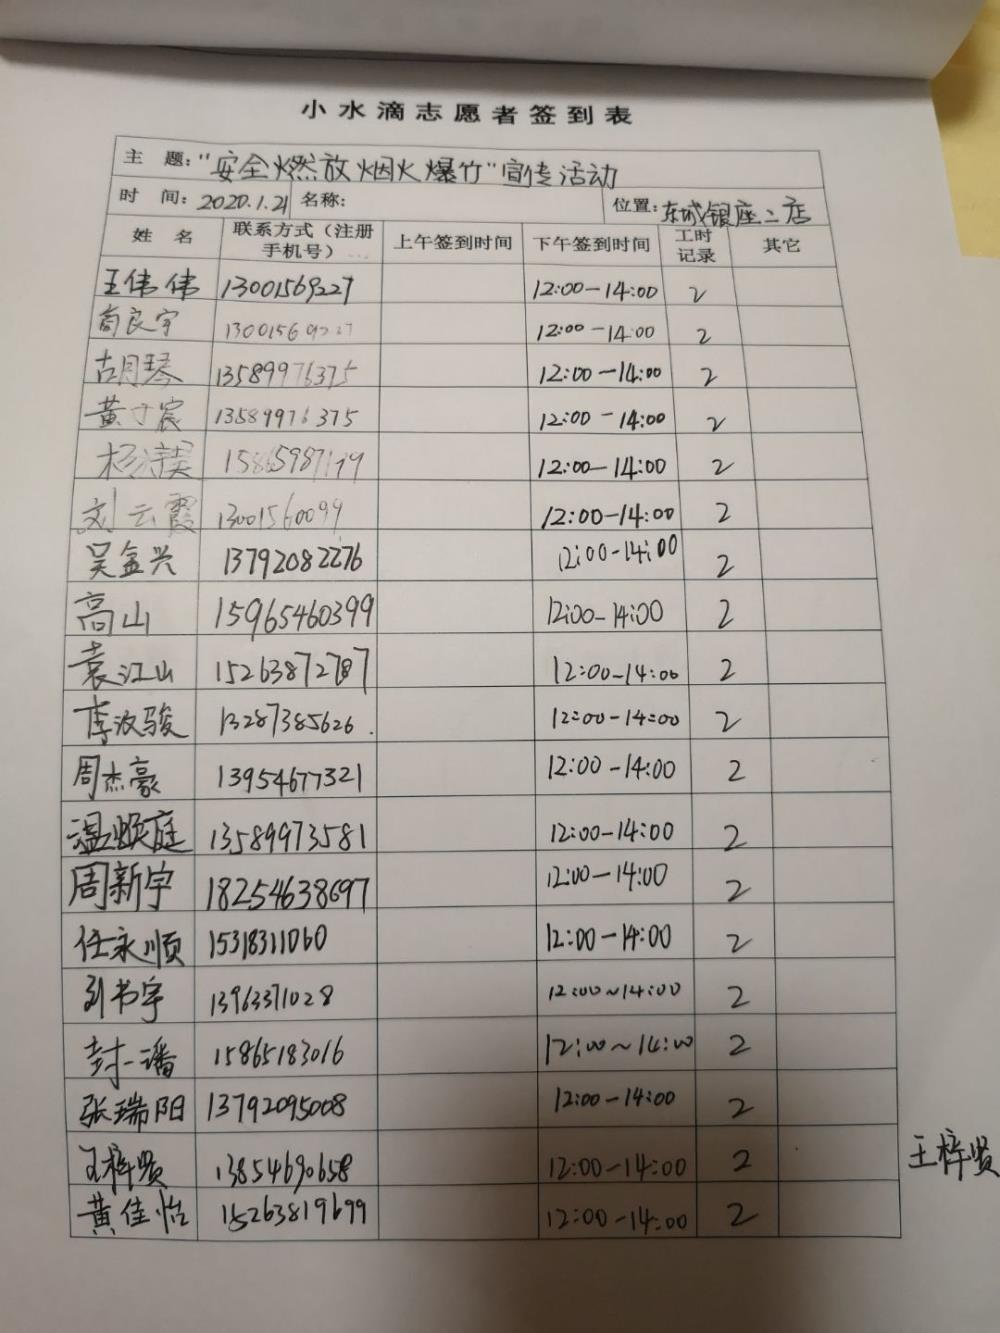 小水滴志愿者签到表
主 题: "安全燃放烟火爆竹"宣传活动
时 间: 2020.1.21 名称: 位置: 东城银座二店
姓 名 联系方式（注册手机号） 上午签到时间 下午签到时间 工时记录 其它
王伟伟 13001569227 12:00-14:00 2
商良宇 13001569227 12:00-14:00 2
胡琴 13589976375 12:00-14:00 2
黄宸 13589976375 12:00-14:00 2
杨 12:00-14:00 2
刘云霞 13001560099 12:00-14:00 2
吴金兴 13792082276 12:00-14:00 2
高山 15965460399 12:00-14:00 2
袁江山 15263872787 12:00-14:00 2
李汶骏 13287385626. 12:00-14:00 2
周杰豪 13954677321 12:00-14:00 2
温焕庭 13589973581 12:00-14:00 2
周新宇 18254638697 12:00-14:00 2
任永顺 15318311060 12:00-14:00 2
刘书宇 13963371028 12:00~14:00 2
封一潘 15865183016 12:00~14:00 2
张瑞阳 13792095008 12:00-14:00 2
王梓贤 13854690658 12:00-14:00 2 王梓贤
黄佳怡 15263819699 12:00-14:00 2